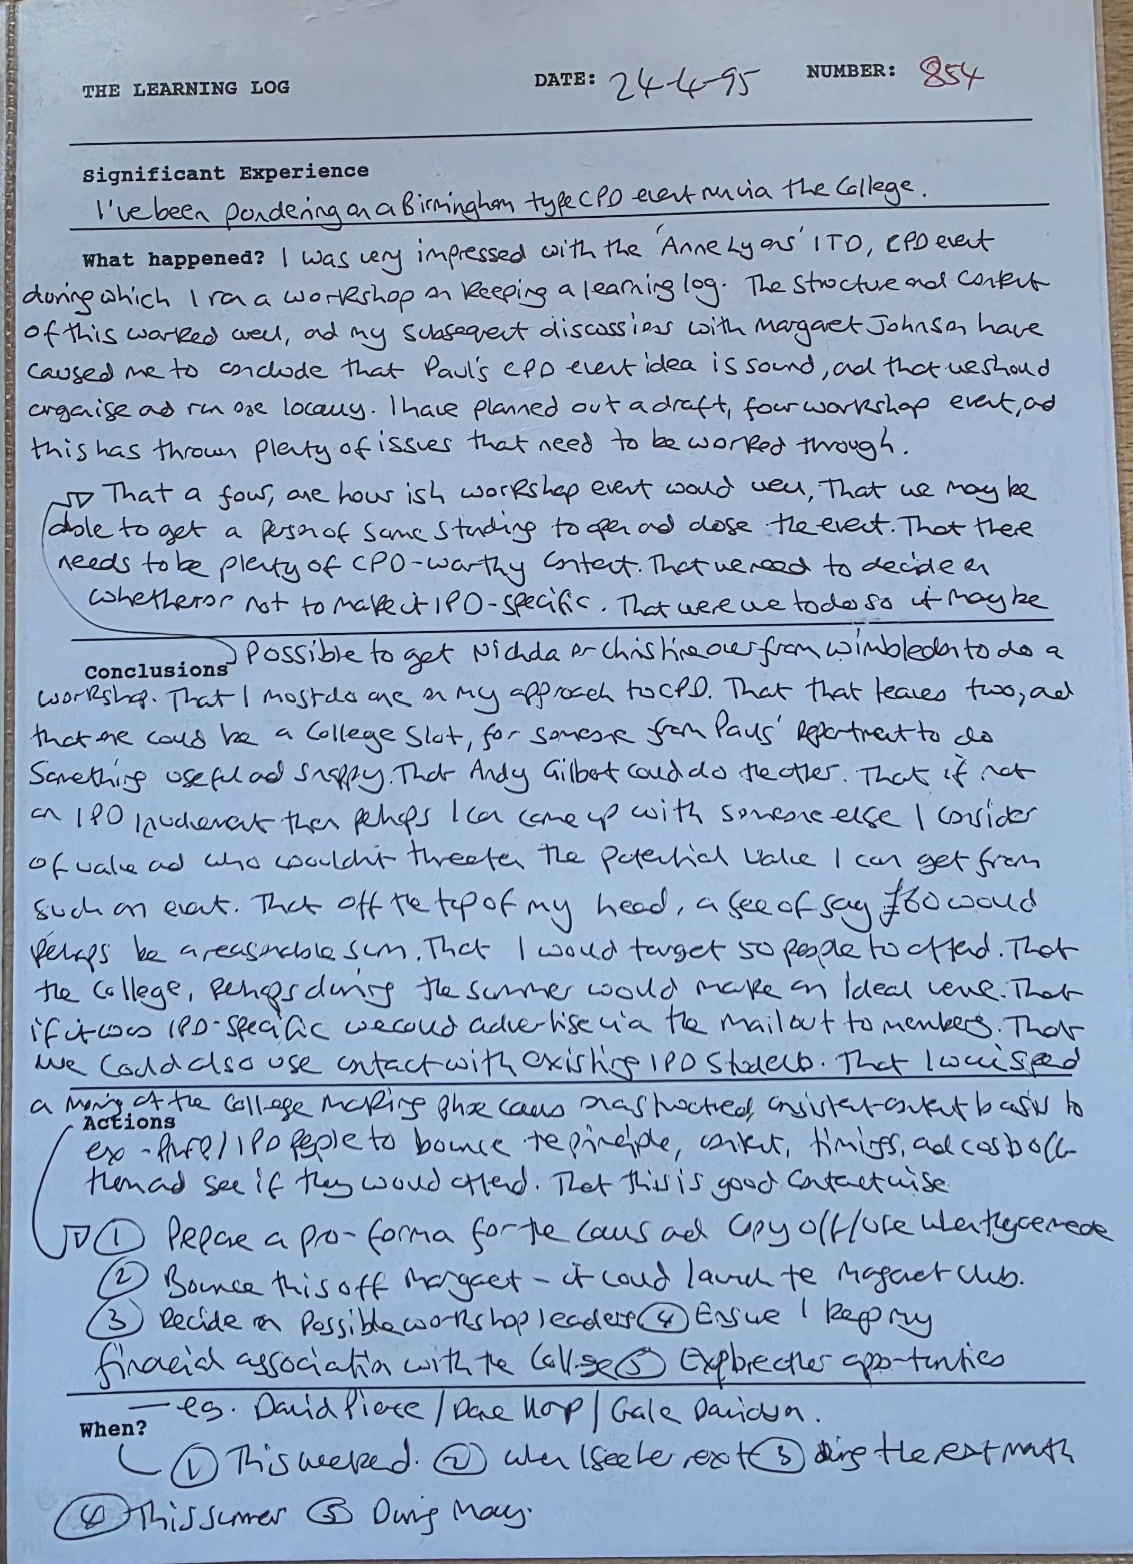 THE LEARNING LOG DATE: 24-4-95 NUMBER: 854
Significant Experience
I've been pondering on a Birmingham type CPD event run via the College.
What happened? I was very impressed with the 'Anne Lyons' ITD, CPD event
during which I ran a workshop on keeping a learning log. The structure and content
of this worked well, and my subsequent discussions with Margaret Johnson have
caused me to conclude that Paul's CPD event idea is sound, and that we should
organise and run one locally. I have planned out a draft, four workshop event, and
this has thrown plenty of issues that need to be worked through.
That a four, one hour ish workshop event would well, That we may be
able to get a person of some standing to open and close the event. That there
needs to be plenty of CPD-worthy content. That we need to decide on
whether or not to make it IPD-specific. That were we to do so it may be
Conclusions possible to get Nichola or Christine over from Wimbledon to do a
workshop. That I must do one on my approach to CPD. That that leaves two, and
that one could be a College slot, for someone from Pauls' Department to do
something useful and snappy. That Andy Gilbert could do the other. That if not
an IPD then perhaps I can come up with someone else I consider
of value and who wouldn't threaten the potential value I can get from
such an event. That off the top of my head, a fee of say £60 would
perhaps be a reasonable sum. That I would target 50 people to attend. That
the College, perhaps during the summer would make an ideal venue. That
if it was IPD-specific we could advertise via the mailout to members. That
we could also use contact with existing IPD students. That I will spend
a morning at the College making phone calls on a structured, consistent content basis to
Actions
ex- /IPD people to bounce the principle, content, timings, and costs off
them and see if they would attend. That this is good contactwise
① Prepare a pro-forma for the calls and copy off/use when they're made
② Bounce this off Margaret - it could launch the Margaret Club.
③ Decide on possible workshop leaders ④ Ensure I keep my
financial association with the College ⑤ Explore other opportunities
- eg. David / Dave / Gale Davidson.
When?
① This weekend. ② When I see her next ③ during the next month
④ This summer ⑤ During May.